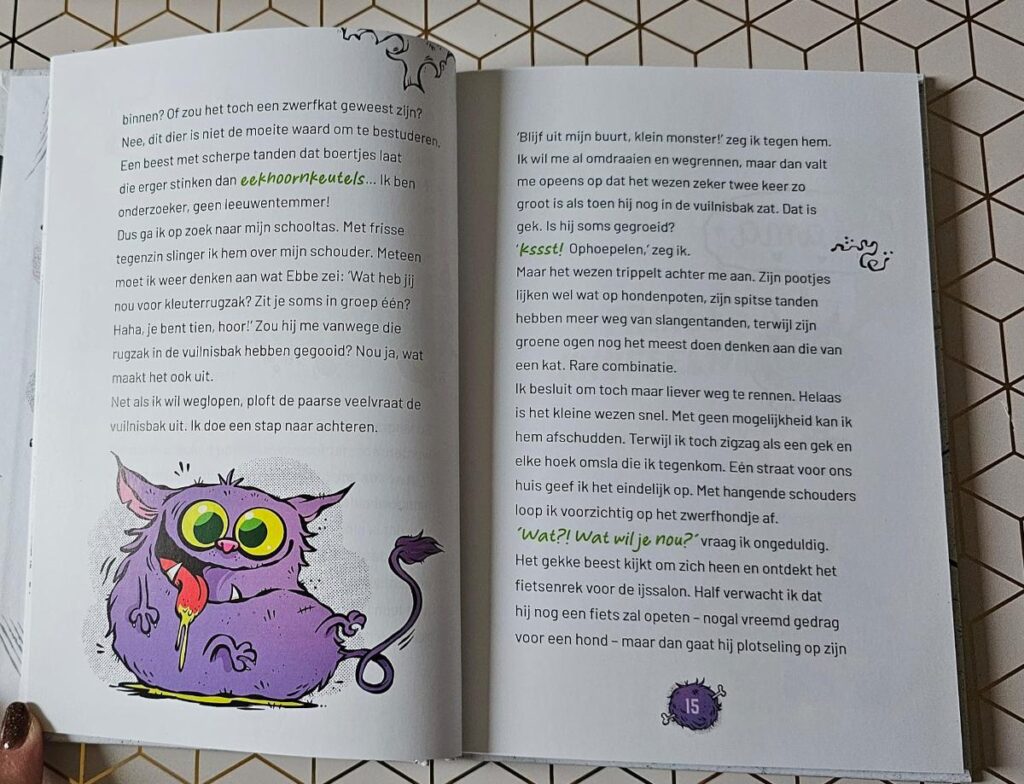 binnen? Of zou het toch een zwerfkat geweest zijn?
Nee, dit dier is niet de moeite waard om te bestuderen.
Een beest met scherpe tanden dat boertjes laat
die erger stinken dan eekhoornkeutels... Ik ben
onderzoeker, geen leeuwentemmer!
Dus ga ik op zoek naar mijn schooltas. Met frisse
tegenzin slinger ik hem over mijn schouder. Meteen
moet ik weer denken aan wat Ebbe zei: ‘Wat heb jij
nou voor kleuterrugzak? Zit je soms in groep één?
Haha, je bent tien, hoor!’ Zou hij me vanwege die
rugzak in de vuilnisbak hebben gegooid? Nou ja, wat
maakt het ook uit.
Net als ik wil weglopen, ploft de paarse veelvraat de
vuilnisbak uit. Ik doe een stap naar achteren.
‘Blijf uit mijn buurt, klein monster!’ zeg ik tegen hem.
Ik wil me al omdraaien en wegrennen, maar dan valt
me opeens op dat het wezen zeker twee keer zo
groot is als toen hij nog in de vuilnisbak zat. Dat is
gek. Is hij soms gegroeid?
‘Kssst! Ophoepelen,’ zeg ik.
Maar het wezen trippelt achter me aan. Zijn pootjes
lijken wel wat op hondenpoten, zijn spitse tanden
hebben meer weg van slangentanden, terwijl zijn
groene ogen nog het meest doen denken aan die van
een kat. Rare combinatie.
Ik besluit om toch maar liever weg te rennen. Helaas
is het kleine wezen snel. Met geen mogelijkheid kan ik
hem afschudden. Terwijl ik toch zigzag als een gek en
elke hoek omsla die ik tegenkom. Eén straat voor ons
huis geef ik het eindelijk op. Met hangende schouders
loop ik voorzichtig op het zwerfhondje af.
‘Wat?! Wat wil je nou?’ vraag ik ongeduldig.
Het gekke beest kijkt om zich heen en ontdekt het
fietsenrek voor de ijssalon. Half verwacht ik dat
hij nog een fiets zal opeten – nogal vreemd gedrag
voor een hond – maar dan gaat hij plotseling op zijn
15